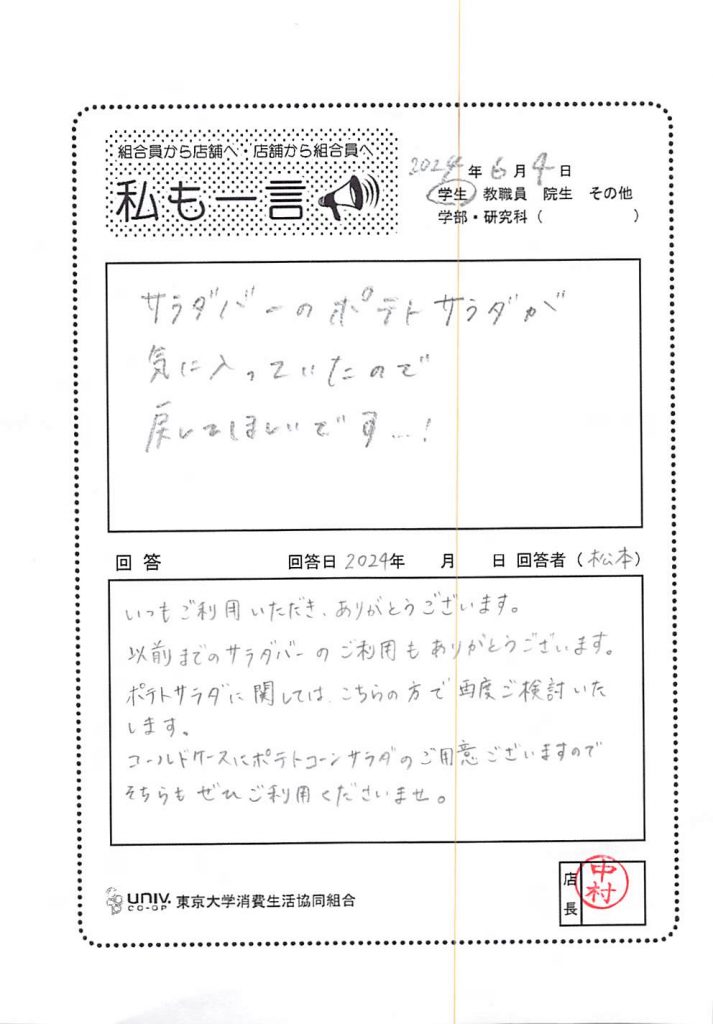 組合員から店舗へ・店舗から組合員へ
私も一言
2024年6月4日
学生 教職員 院生 その他
学部・研究科( )
サラダバーのポテトサラダが
気に入っていたので
戻してほしいです…!
回答 回答日2024年 月 日 回答者(松本)
いつもご利用いただき、ありがとうございます。
以前までのサラダバーのご利用もありがとうございます。
ポテトサラダに関しては、こちらの方で再度ご検討いた
します。
コールドケースにポテトコーンサラダのご用意ございますので
そちらもぜひご利用くださいませ。
UNIV.
CO-OP
東京大学消費生活協同組合
店長
中村